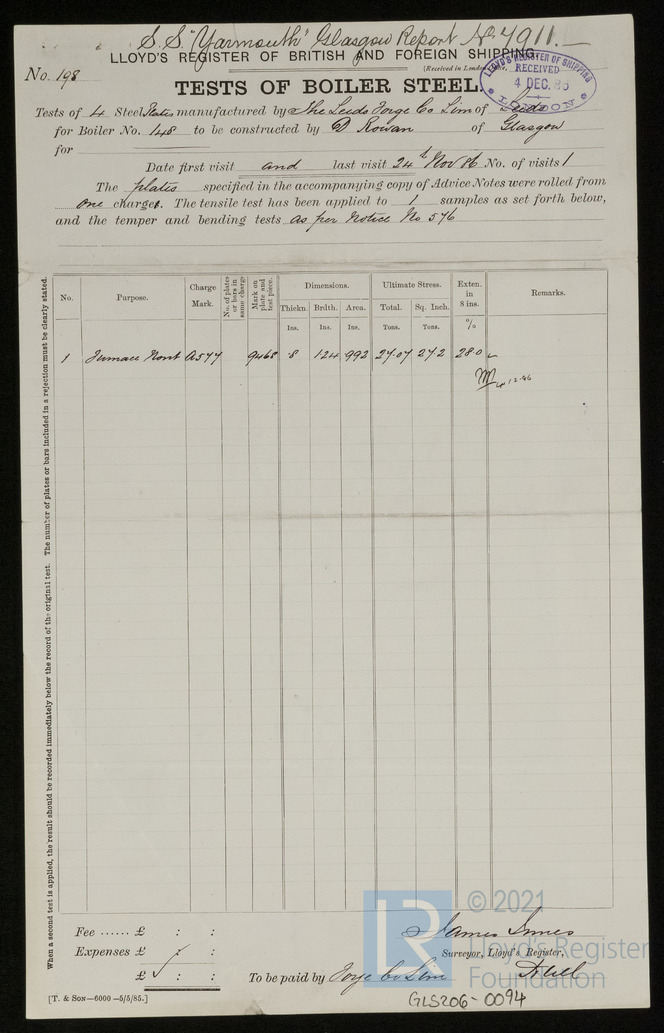 S.S. "Yarmouth" Glasgow Report No 7911.—
LLOYD'S REGISTER OF BRITISH AND FOREIGN SHIPPING.
No. 198
(Received in London
LLOYD'S REGISTER OF SHIPPING
RECEIVED
4 DEC. 86
LONDON
TESTS OF BOILER STEEL.
Tests of 4 Steel Plates manufactured by The Leeds Forge Co Lim of Leeds
for Boiler No. 148 to be constructed by D Rowan of Glasgow
for
Date first visit and last visit 24th Nov 86 No. of visits 1
The plates specified in the accompanying copy of Advice Notes were rolled from
one charge. The tensile test has been applied to 1 samples as set forth below,
and the temper and bending tests as per Notice No 576
When a second test is applied, the result should be recorded immediately below the record of the original test. The number of plates or bars included in a rejection must be clearly stated.
No. Purpose. Charge Mark. No. of plates or bars in same charge Mark on plate and test piece. Dimensions. Ultimate Stress. Exten. in 8 ins. Remarks.
Thickn. Brdth. Area. Total. Sq. Inch.
Ins. Ins. Ins. Tons. Tons. %
1 Furnace Front A577 9468 .8 1.24 .992 27.07 27.2 28.0
4.12.86
Fee ...... £ : :
Expenses £ : :
£ : :
To be paid by Forge Co Lim
James Innes
Surveyor, Lloyd's Register,
Hull
[T. & Son—6000—5/5/85.]
GLS206-0094
LR
© 2021
Lloyd's Register
Foundation